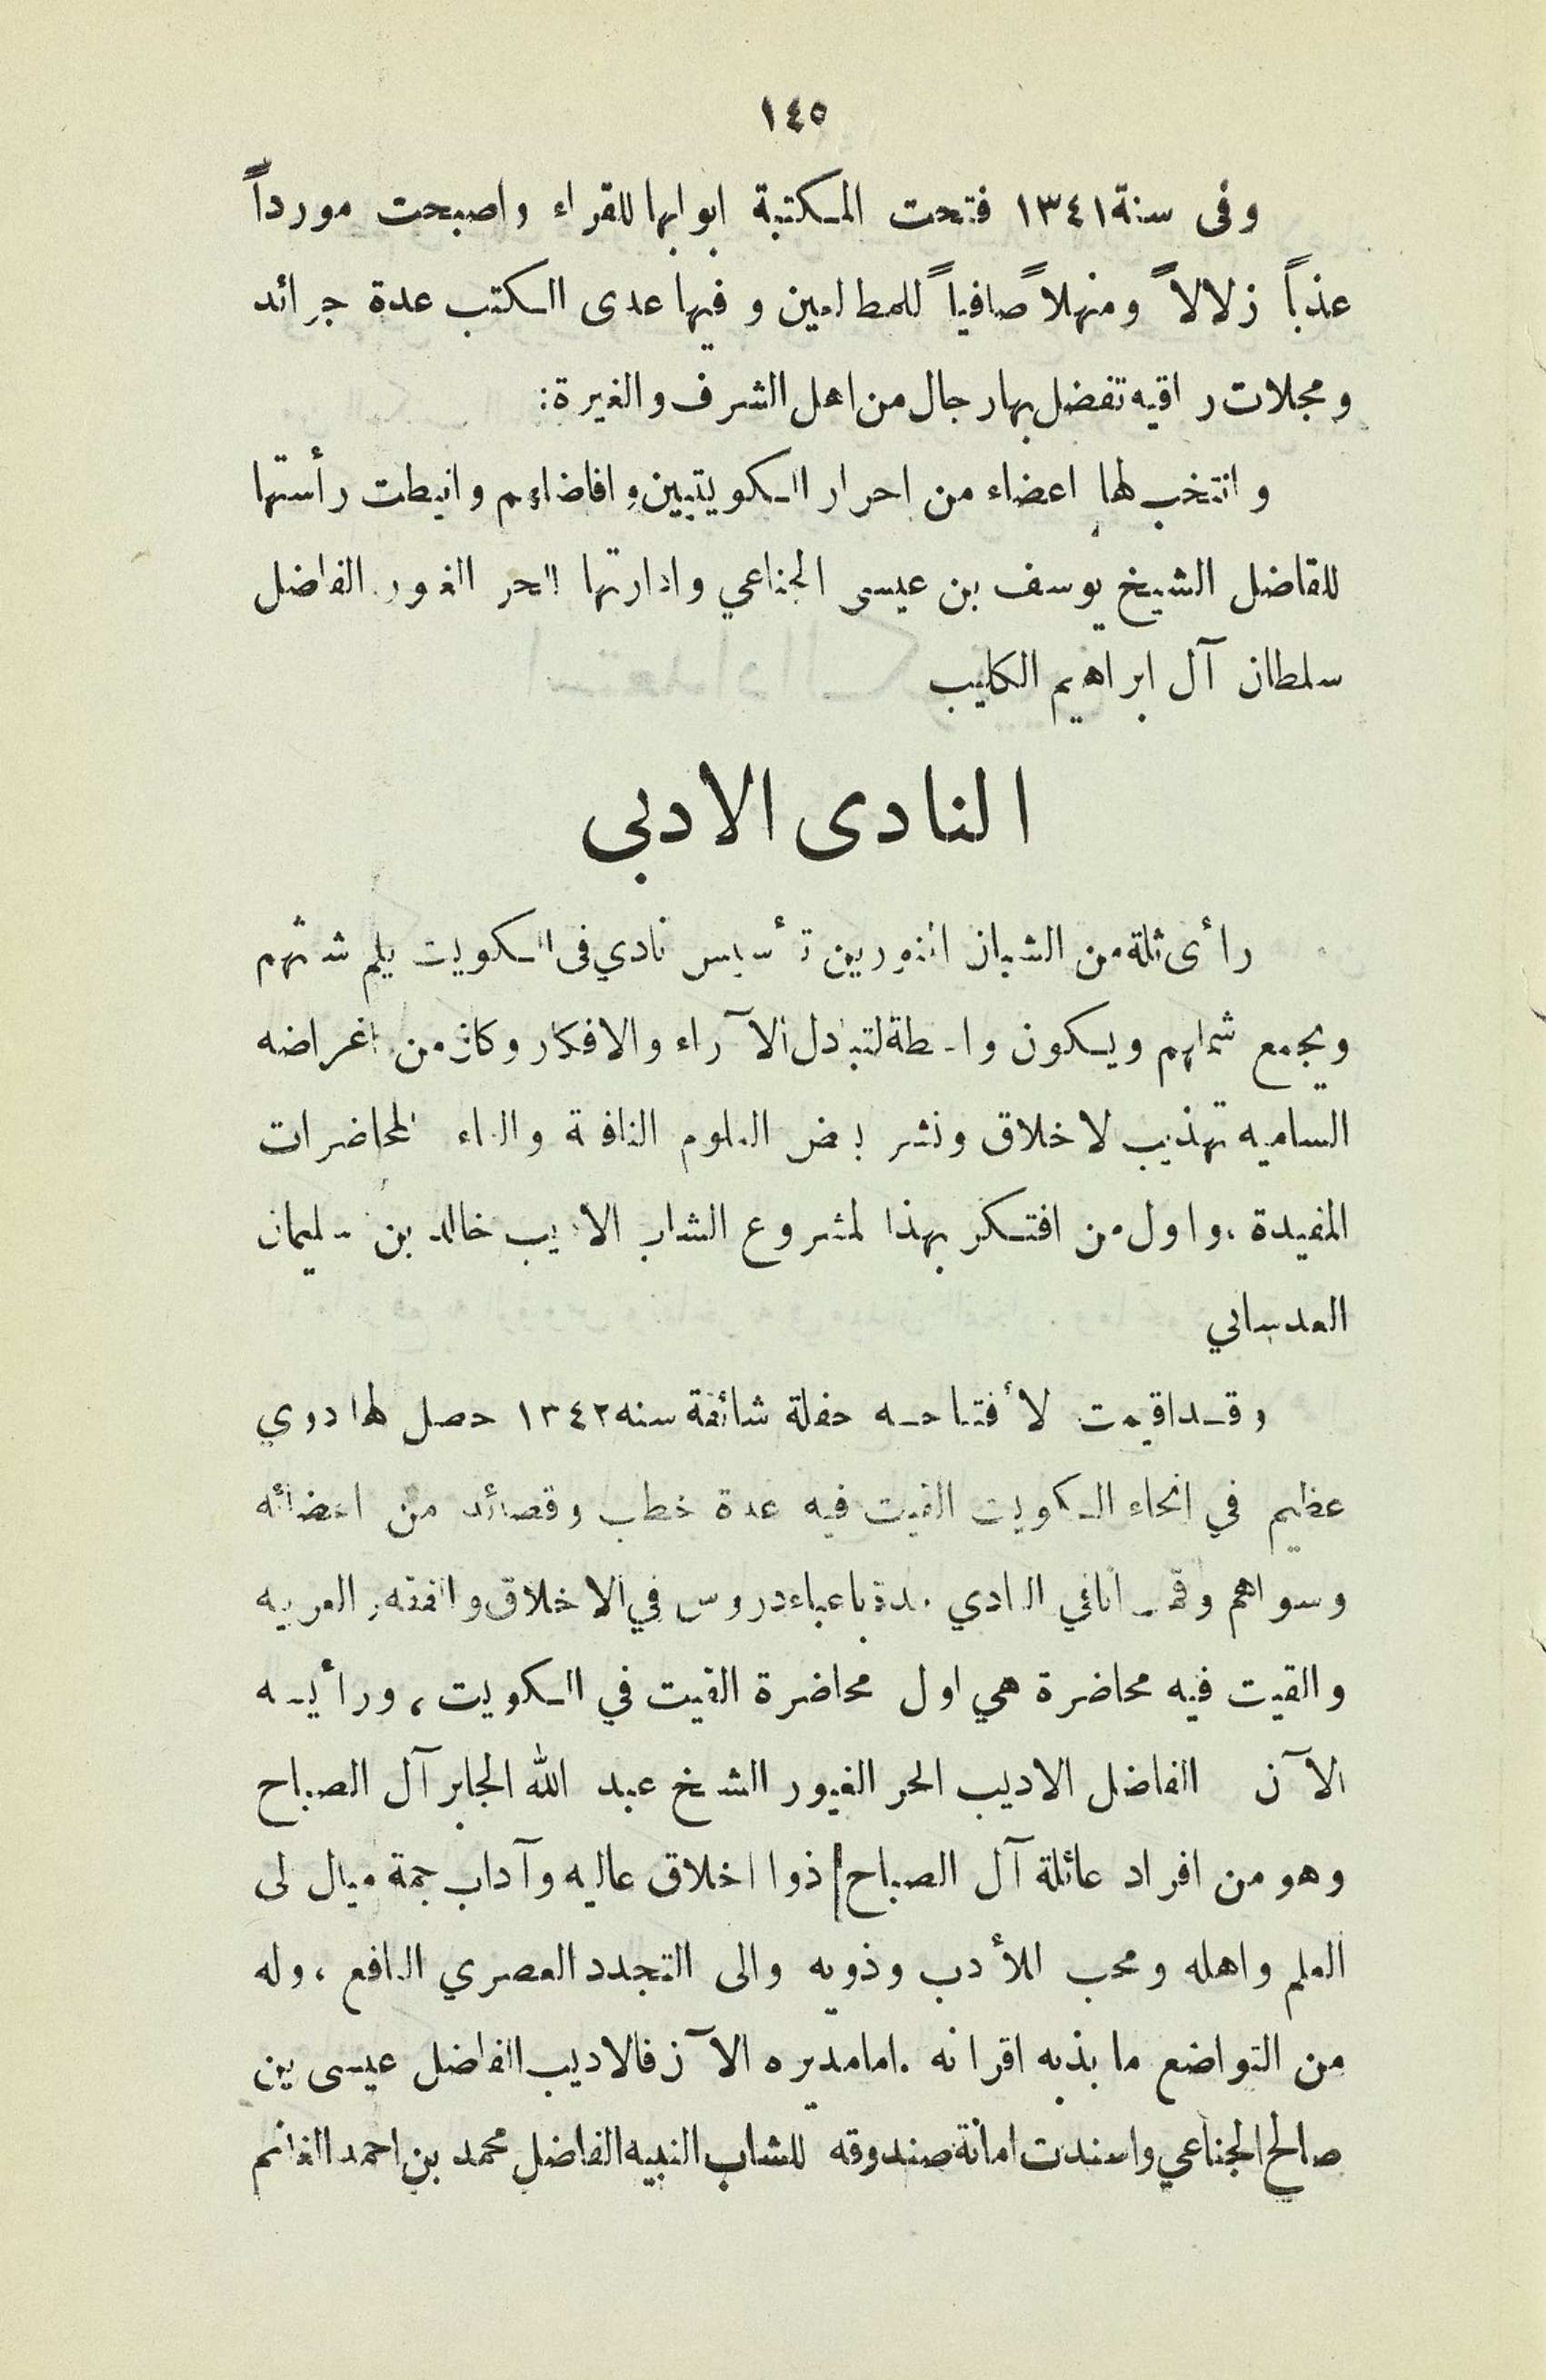 ١٤٥
وفى سنة ١٣٤١ فتحت المكتبة ابوابها للقراء واصبحت مورداً
عذباً زلالاً ومنهلاً صافياً للمطالعين وفيها عدى الكتب عدة جرائد
ومجلات راقيه تفضل بها رجال من اهل الشرف والغيرة:
وانتخب لها اعضاء من احرار الكويتيين وافاضلهم وانيطت رأستها
للفاضل الشيخ يوسف بن عيسى الجناعي وادارتها الحر الغيور الفاضل
سلطان آل ابراهيم الكليب
النادى الادبى
رأى ثلة من الشبان المنورين تأسيس نادي فى الكويت يلم شعثهم
ويجمع شملهم ويكون واسطة لتبادل الآراء والافكار وكان من اغراضه
الساميه تهذيب الاخلاق ونشر بعض العلوم النافعة والقاء المحاضرات
المفيدة ، واول من افتكر بهذا المشروع الشاب الاديب خالد بن سليمان
العدساني
وقد اقيمت لأفتتاحه حفلة شائقة سنه ١٣٤٢ حصل لها دوي
عظيم في انحاء الكويت القيت فيه عدة خطب وقصائد من اعضائه
وسواهم وقمـ انافي النادي مدة باعباء دروس في الاخلاق والفقه والعربيه
والقيت فيه محاضرة هي اول محاضرة القيت في الكويت ، ورأيسه
الآن الفاضل الاديب الحر الغيور الشيخ عبد الله الجابر آل الصباح
وهو من افراد عائلة آل الصباح ذوا اخلاق عاليه وآداب جمة ميال الى
العلم واهله ومحب للأدب وذويه والى التجدد العصري النافع ، وله
من التواضع ما بذبه اقرانه . اما مديره الآن فالاديب الفاضل عيسى بن
صالح الجناعي واسندت امانة صندوقه للشاب النبيه الفاضل محمد بن احمد الغانم